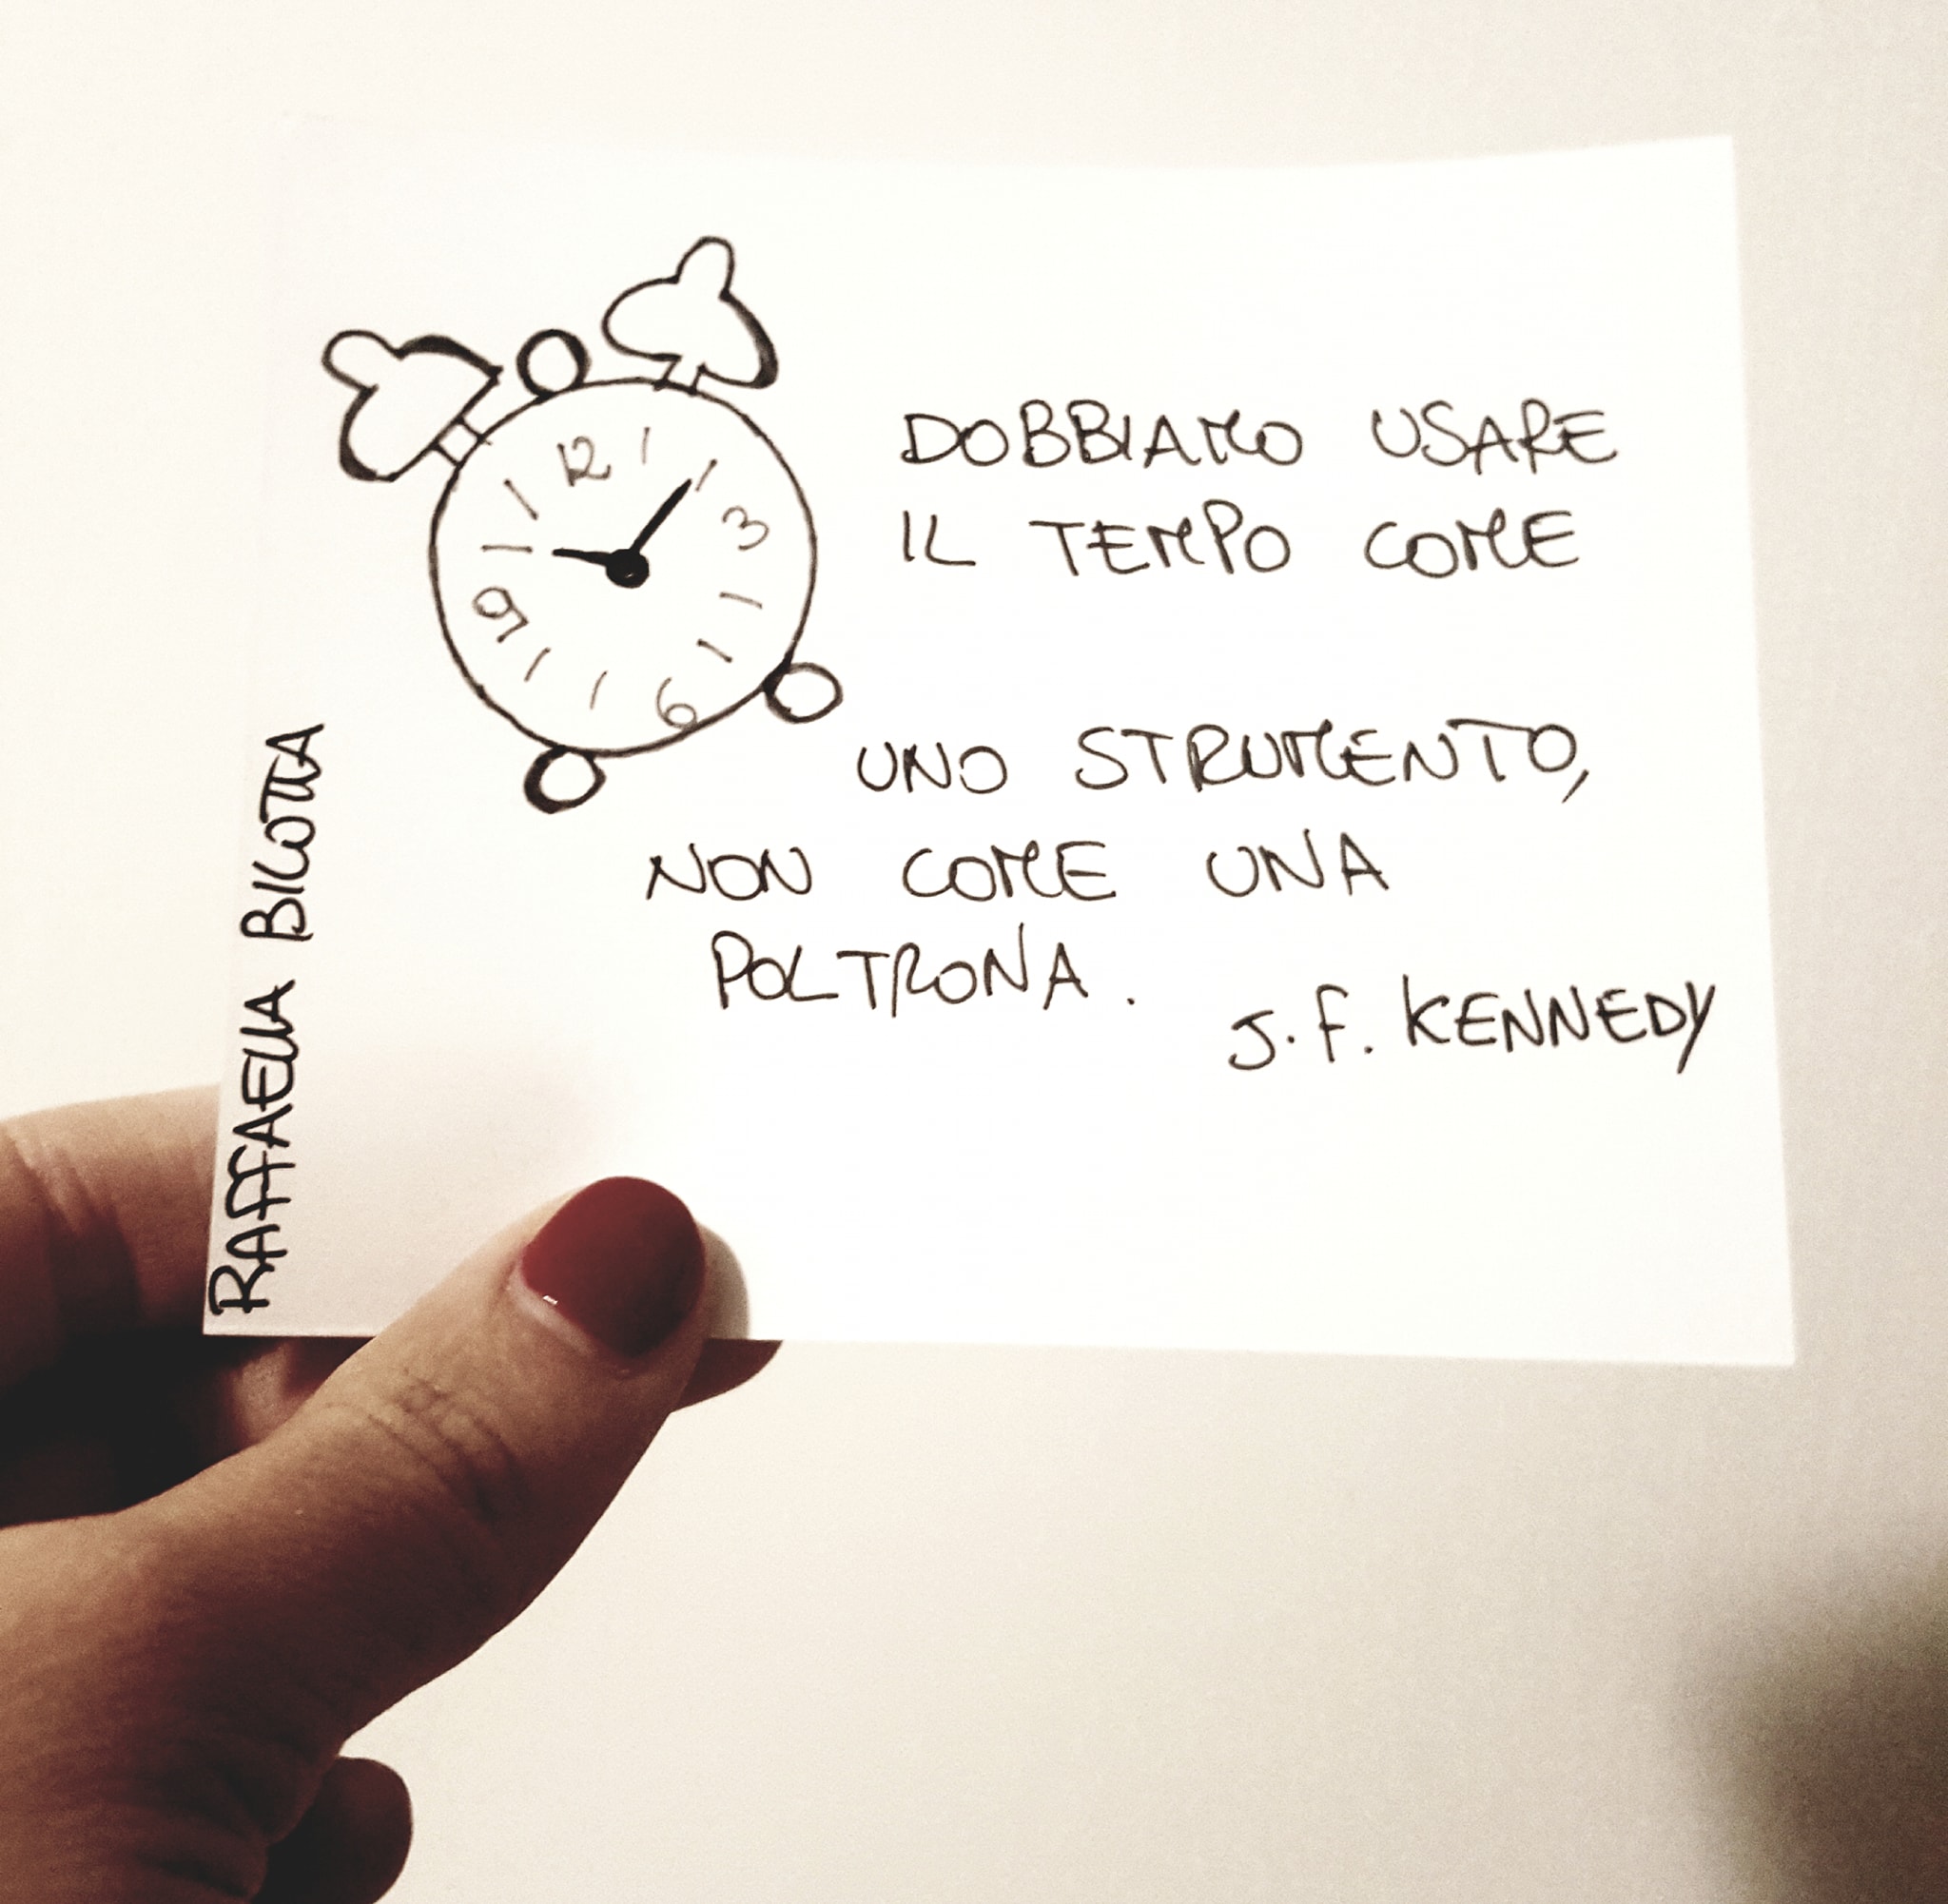 12
3
6
9
DOBBIAMO USARE
IL TEMPO COME
UNO STRUMENTO,
NON COME UNA
POLTRONA.
J.F. KENNEDY
RAFFAELLA BILOTTA